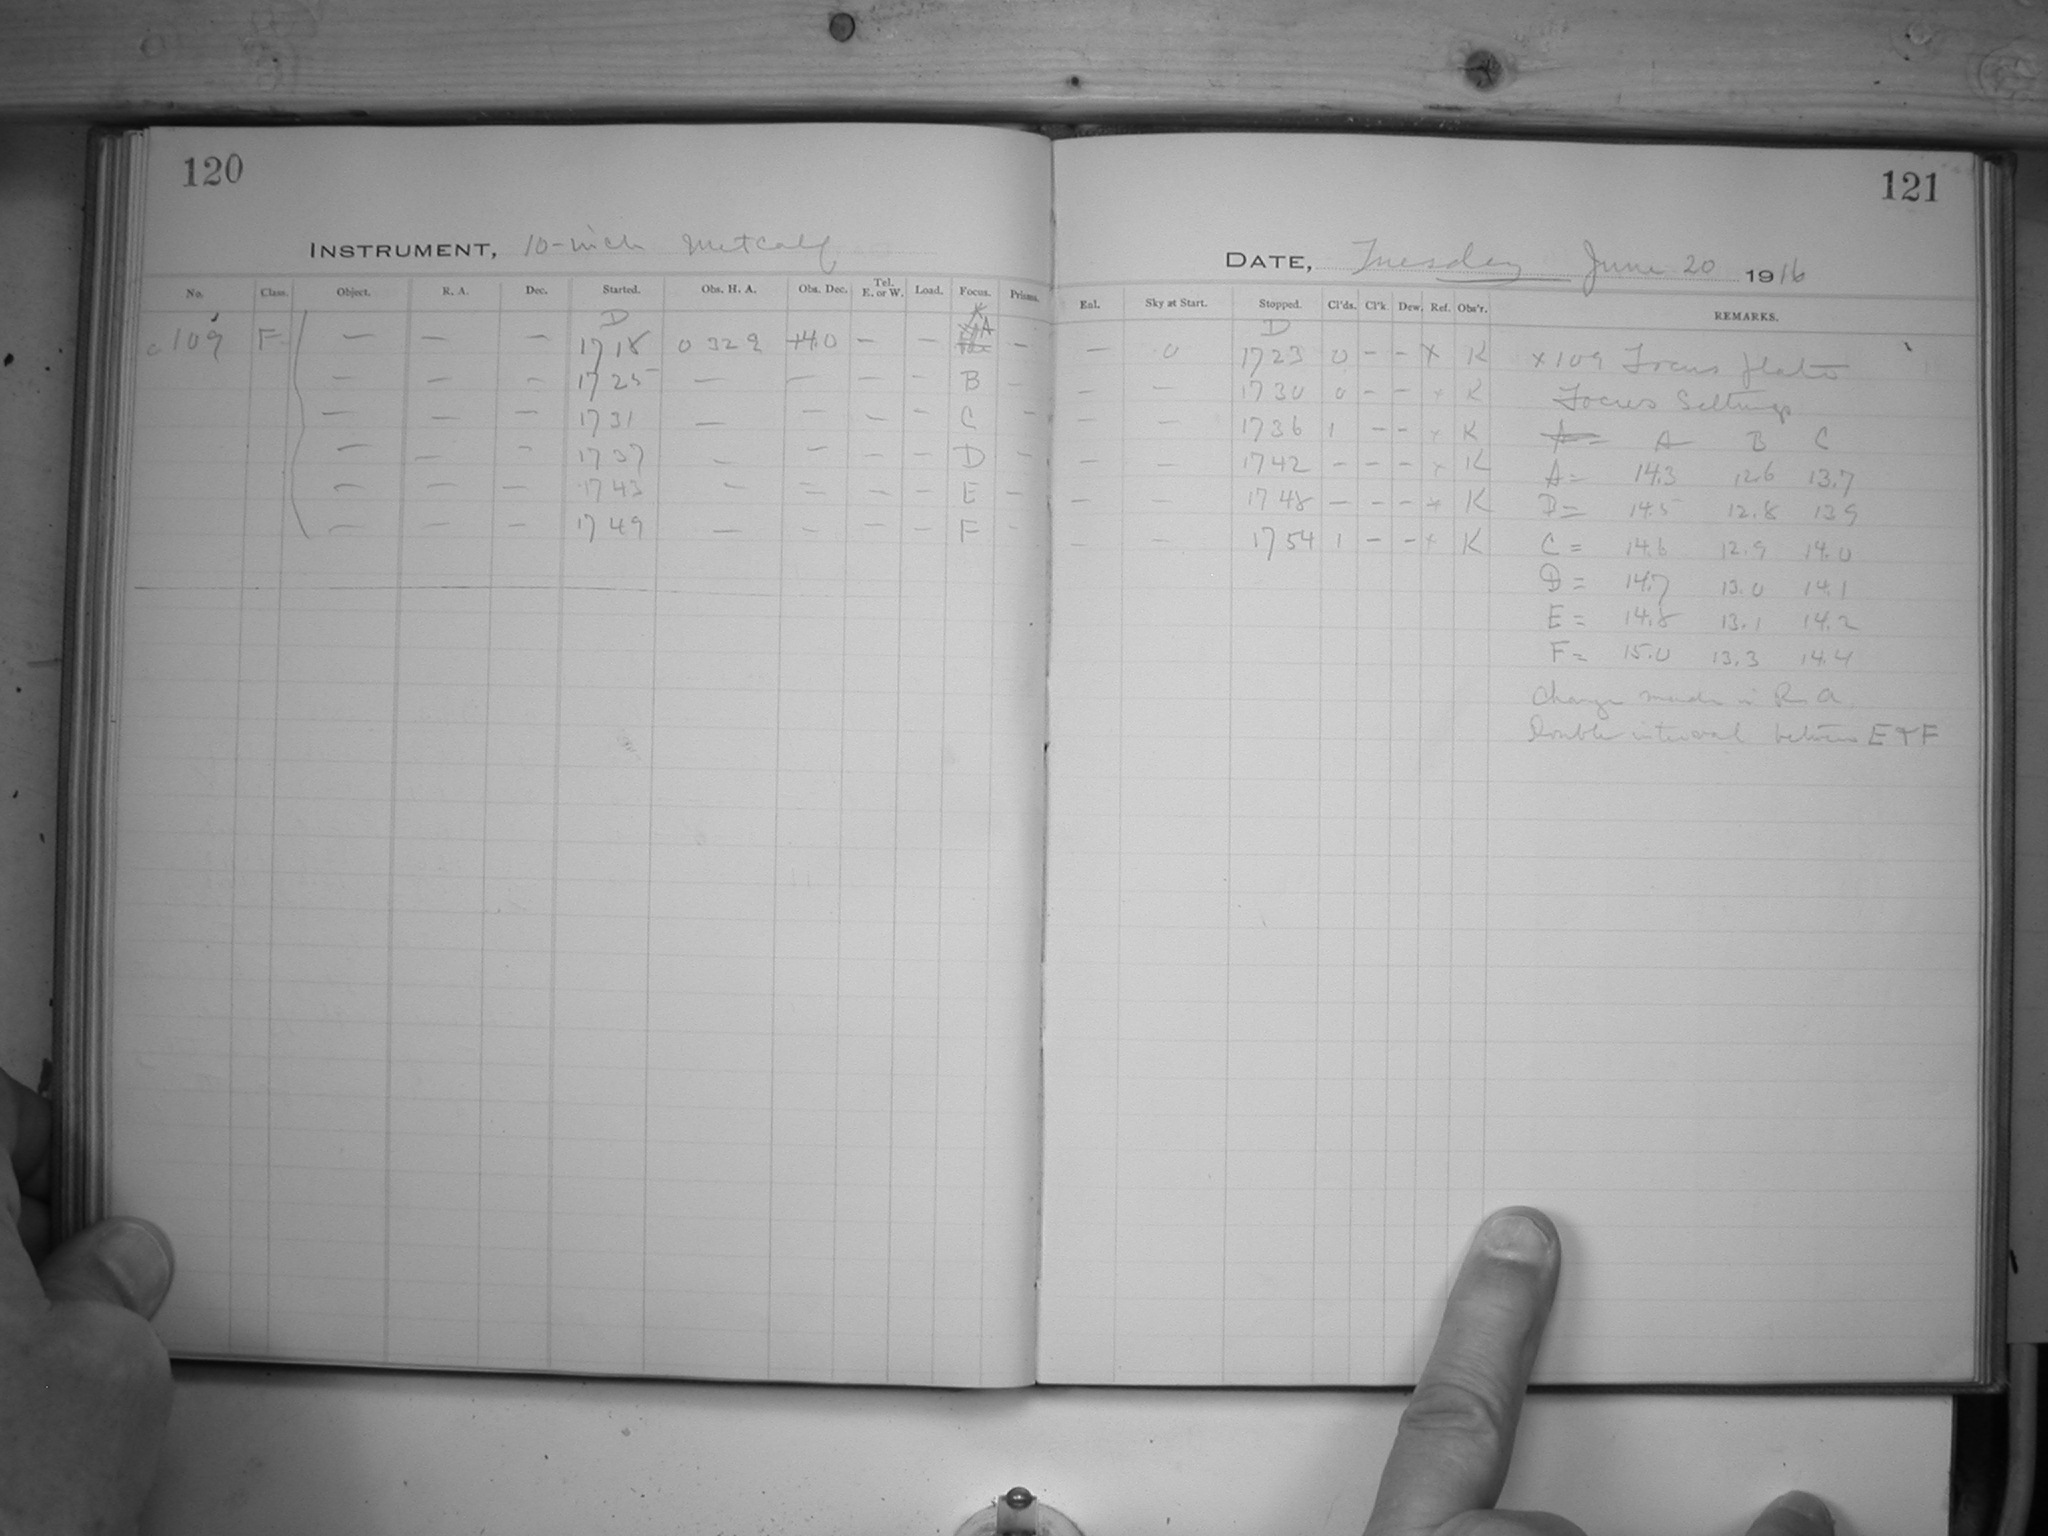 120
INSTRUMENT, 10-inch Metcalf
No. Class. Object. R. A. Dec. Started. Obs. H. A. Obs. Dec. Tel. E. or W. Load. Focus. Prisms.
D
c 109 F — — — 1718 0 32 2 +4.0 — — A —
— — — 1725 — — — — B —
— — — 1731 — — — — C —
— — — 1737 — — — — D —
— — — 1743 — — — — E —
— — — 1749 — — — — F —
121
DATE, Tuesday June 20 1916
Enl. Sky at Start. Stopped. Cl'ds. Cl'k. Dew. Ref. Obs'r. REMARKS.
D
— 0 1723 0 — — x K x109 Focus plate
— — 1730 0 — — x K Focus Settings
— — 1736 1 — — x K A B C
— — 1742 — — — x K A = 14.3 12.6 13.7
— — 1748 — — — x K B = 14.5 12.8 13.9
— — 1754 1 — — x K C = 14.6 12.9 14.0
D = 14.7 13.0 14.1
E = 14.8 13.1 14.2
F = 15.0 13.3 14.4
Change made in R. A.
Double interval between E & F